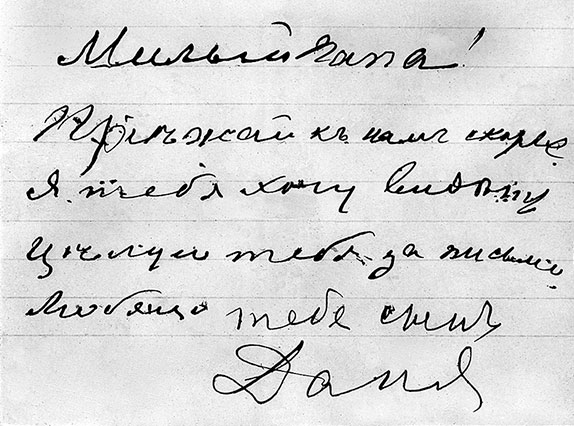 Милый папа!
Приъжай къ намъ скорее
я тебя хочу видить
цълую тебя за письмо.
тебе сынъ
Даня